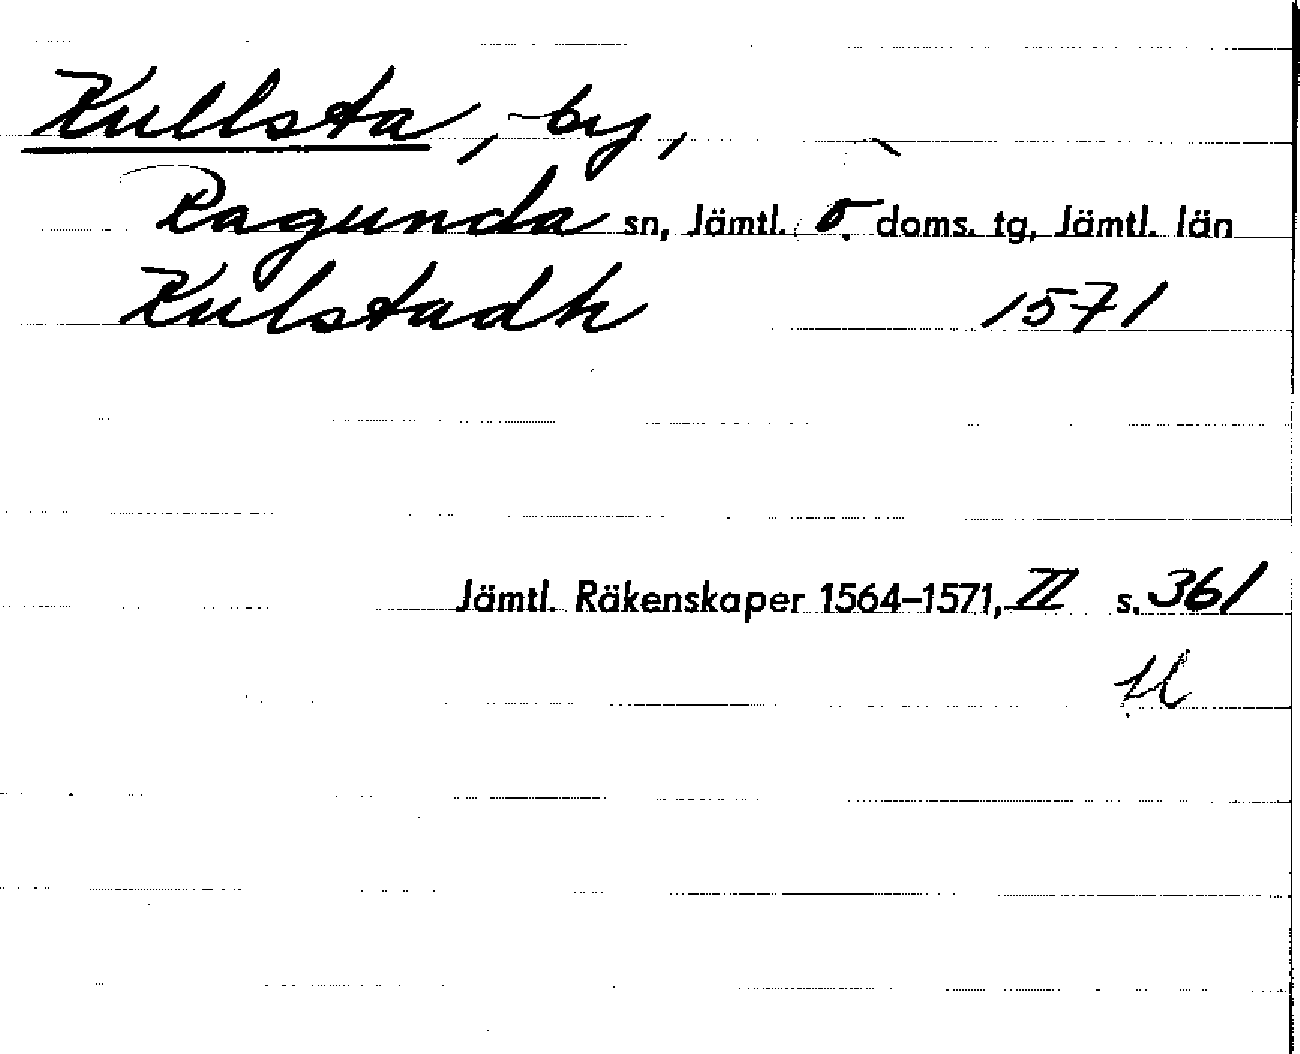 Kullsta, by,
Ragunda sn, Jämtl. ö. doms. tg, Jämtl. län
Kulstadh 1571
Jämtl. Räkenskaper 1564–1571, II s. 361